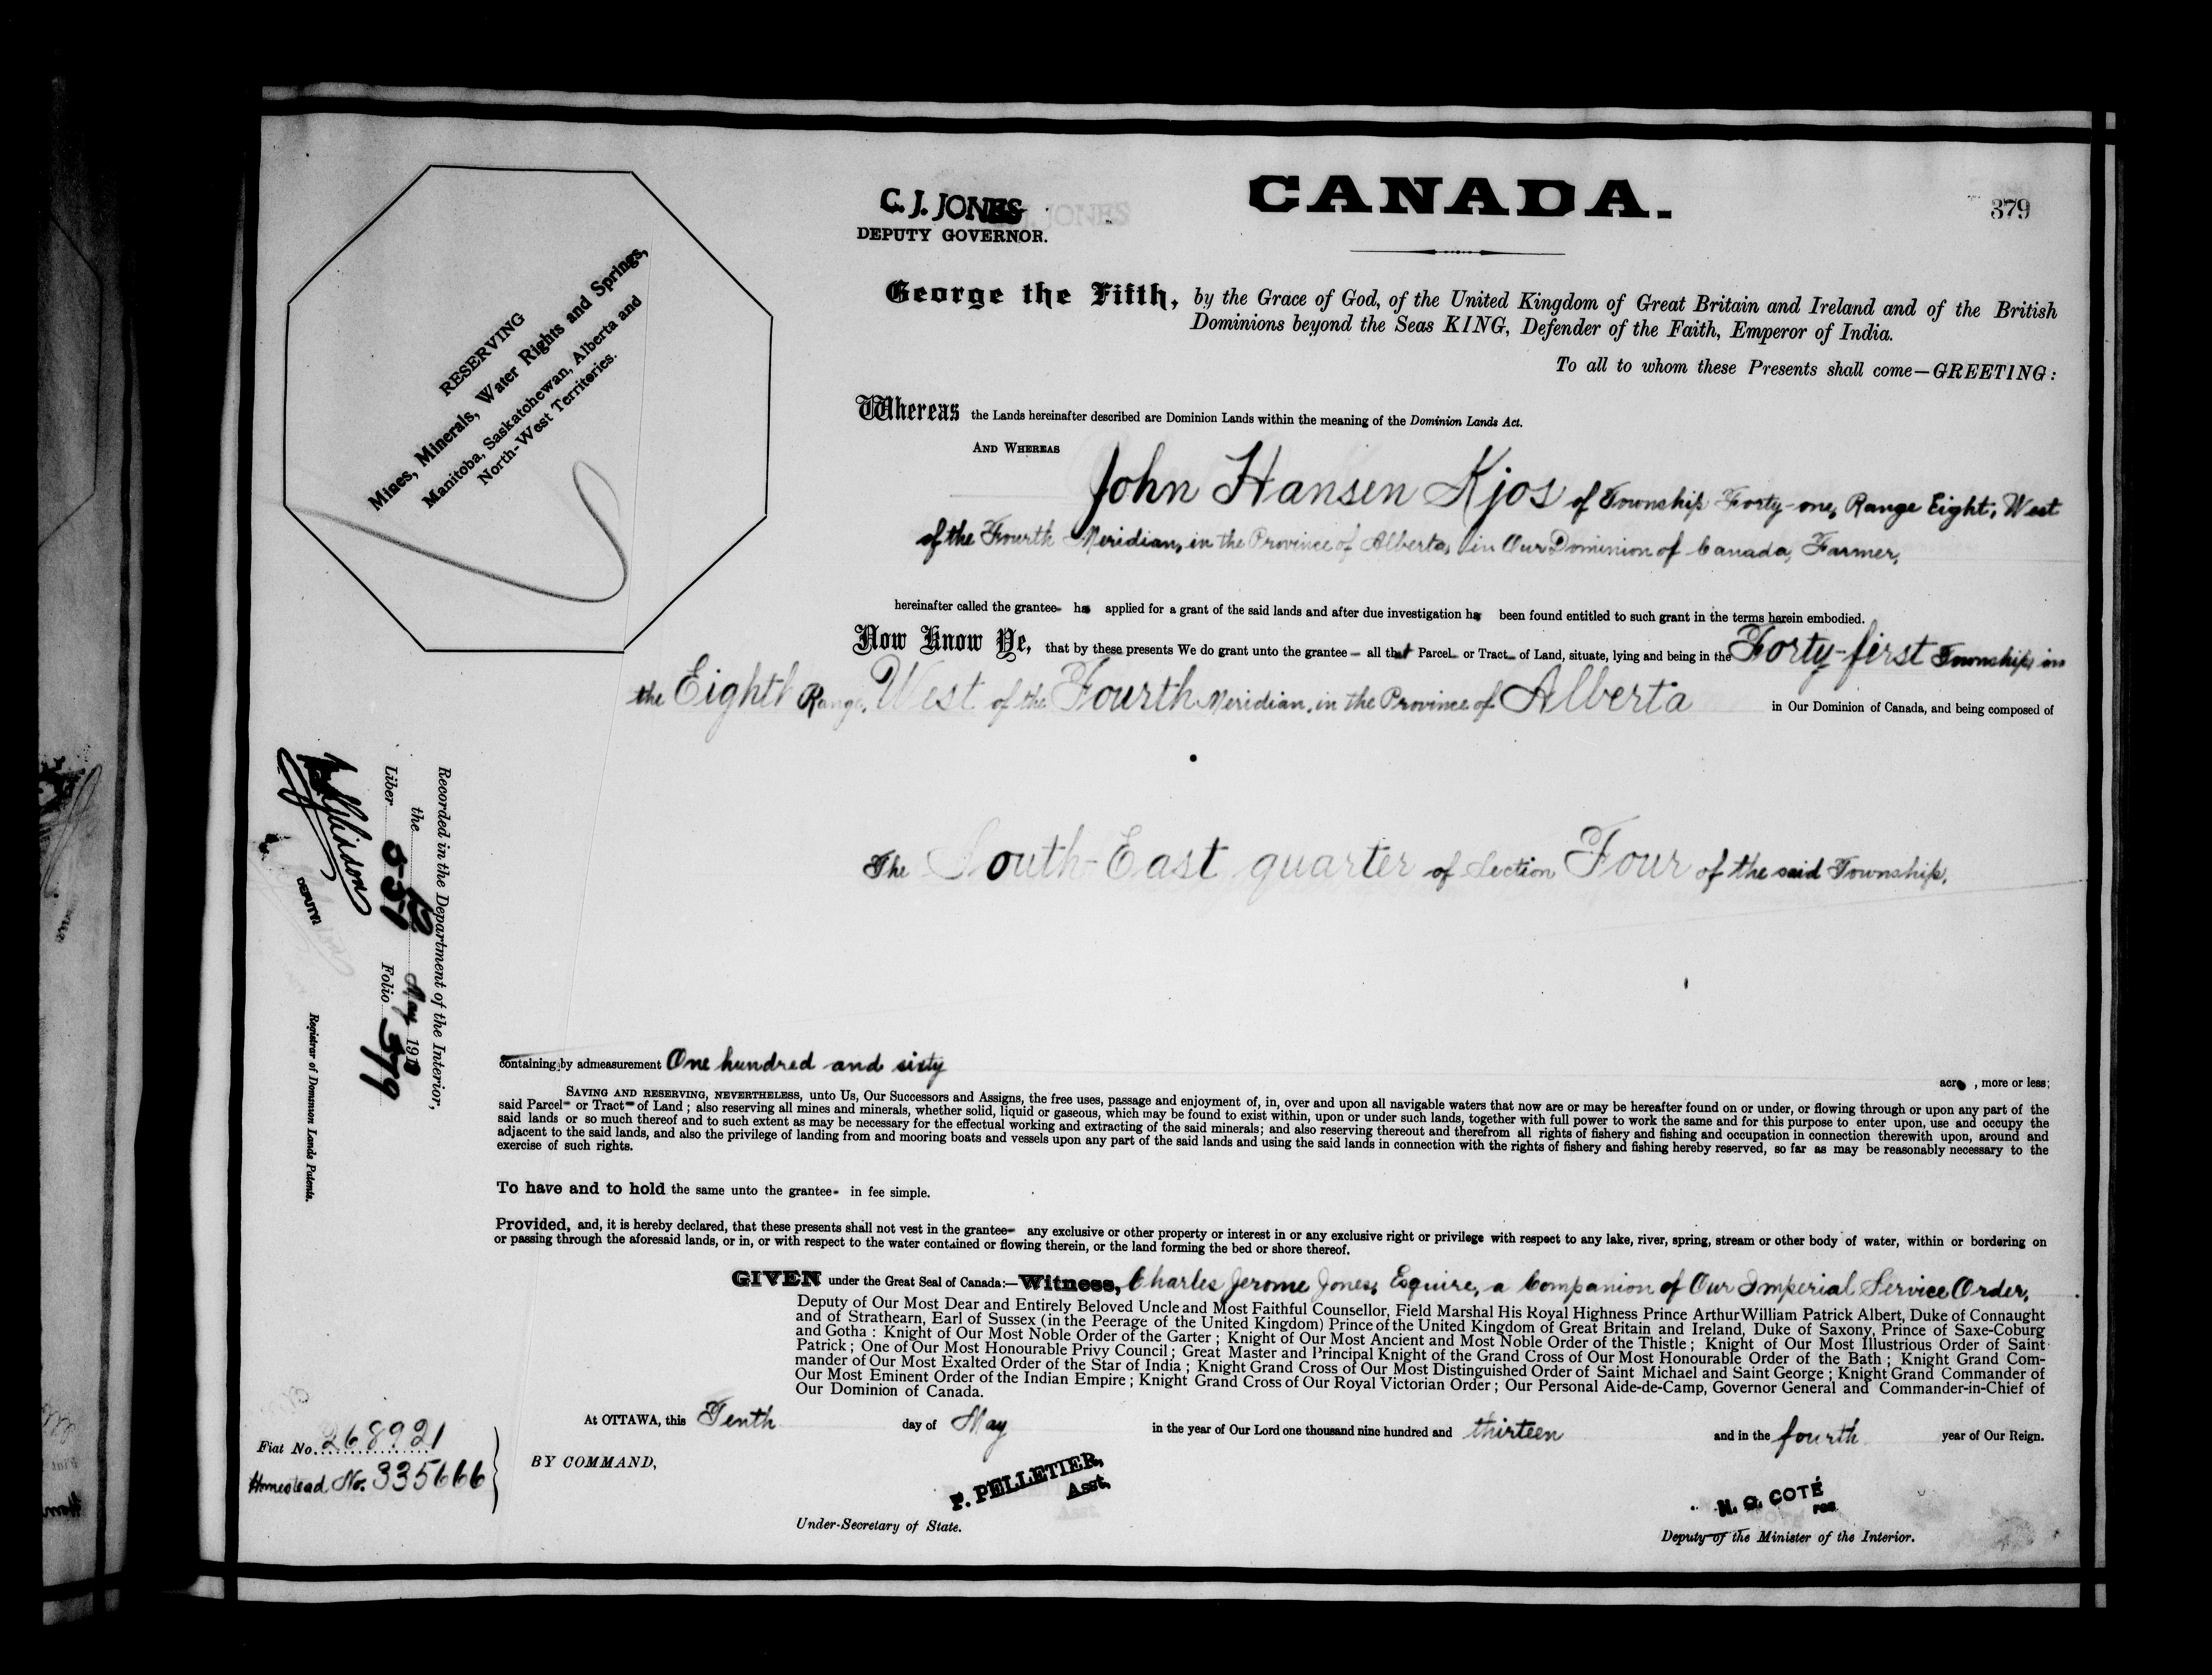 CANADA.
379
C. J. JONES
DEPUTY GOVERNOR.
RESERVING
Mines, Minerals, Water Rights and Springs,
Manitoba, Saskatchewan, Alberta and
North-West Territories.
George the Fifth, by the Grace of God, of the United Kingdom of Great Britain and Ireland and of the British
Dominions beyond the Seas KING, Defender of the Faith, Emperor of India.
To all to whom these Presents shall come—GREETING:
Whereas the Lands hereinafter described are Dominion Lands within the meaning of the Dominion Lands Act.
AND WHEREAS
John Hansen Kjos of Township Forty-one, Range Eight, West
of the Fourth Meridian, in the Province of Alberta, in Our Dominion of Canada, Farmer,
hereinafter called the grantee has applied for a grant of the said lands and after due investigation has been found entitled to such grant in the terms herein embodied.
Now Know Ye, that by these presents We do grant unto the grantee all that Parcel or Tract of Land, situate, lying and being in the Forty-first Township, in
the Eighth Range, West of the Fourth Meridian, in the Province of Alberta in Our Dominion of Canada, and being composed of
The South-East quarter of Section Four of the said Township,
Recorded in the Department of the Interior,
the May 1913
Liber 551 Folio 379
DEPUTY
Registrar of Dominion Lands Patents.
containing by admeasurement One hundred and sixty
acres, more or less;
SAVING AND RESERVING, NEVERTHELESS, unto Us, Our Successors and Assigns, the free uses, passage and enjoyment of, in, over and upon all navigable waters that now are or may be hereafter found on or under, or flowing through or upon any part of the
said Parcel or Tract of Land; also reserving all mines and minerals, whether solid, liquid or gaseous, which may be found to exist within, upon or under such lands, together with full power to work the same and for this purpose to enter upon, use and occupy the
said lands or so much thereof and to such extent as may be necessary for the effectual working and extracting of the said minerals; and also reserving thereout and therefrom all rights of fishery and fishing and occupation in connection therewith upon, around and
adjacent to the said lands, and also the privilege of landing from and mooring boats and vessels upon any part of the said lands and using the said lands in connection with the rights of fishery and fishing hereby reserved, so far as may be reasonably necessary to the
exercise of such rights.
To have and to hold the same unto the grantee in fee simple.
Provided, and, it is hereby declared, that these presents shall not vest in the grantee any exclusive or other property or interest in or any exclusive right or privilege with respect to any lake, river, spring, stream or other body of water, within or bordering on
or passing through the aforesaid lands, or in, or with respect to the water contained or flowing therein, or the land forming the bed or shore thereof.
GIVEN under the Great Seal of Canada:—Witness, Charles Jerome Jones, Esquire, a Companion of Our Imperial Service Order,
Deputy of Our Most Dear and Entirely Beloved Uncle and Most Faithful Counsellor, Field Marshal His Royal Highness Prince Arthur William Patrick Albert, Duke of Connaught
and of Strathearn, Earl of Sussex (in the Peerage of the United Kingdom) Prince of the United Kingdom of Great Britain and Ireland, Duke of Saxony, Prince of Saxe-Coburg
and Gotha: Knight of Our Most Noble Order of the Garter; Knight of Our Most Ancient and Most Noble Order of the Thistle; Knight of Our Most Illustrious Order of Saint
Patrick; One of Our Most Honourable Privy Council; Great Master and Principal Knight of the Grand Cross of Our Most Honourable Order of the Bath; Knight Grand Com-
mander of Our Most Exalted Order of the Star of India; Knight Grand Cross of Our Most Distinguished Order of Saint Michael and Saint George; Knight Grand Commander of
Our Most Eminent Order of the Indian Empire; Knight Grand Cross of Our Royal Victorian Order; Our Personal Aide-de-Camp, Governor General and Commander-in-Chief of
Our Dominion of Canada.
At OTTAWA, this Tenth day of May in the year of Our Lord one thousand nine hundred and thirteen and in the fourth year of Our Reign.
Fiat No. 268921
Homestead No. 335666
BY COMMAND,
P. PELLETIER,
Asst.
Under-Secretary of State.
N. O. COTÉ
FOR
Deputy of the Minister of the Interior.